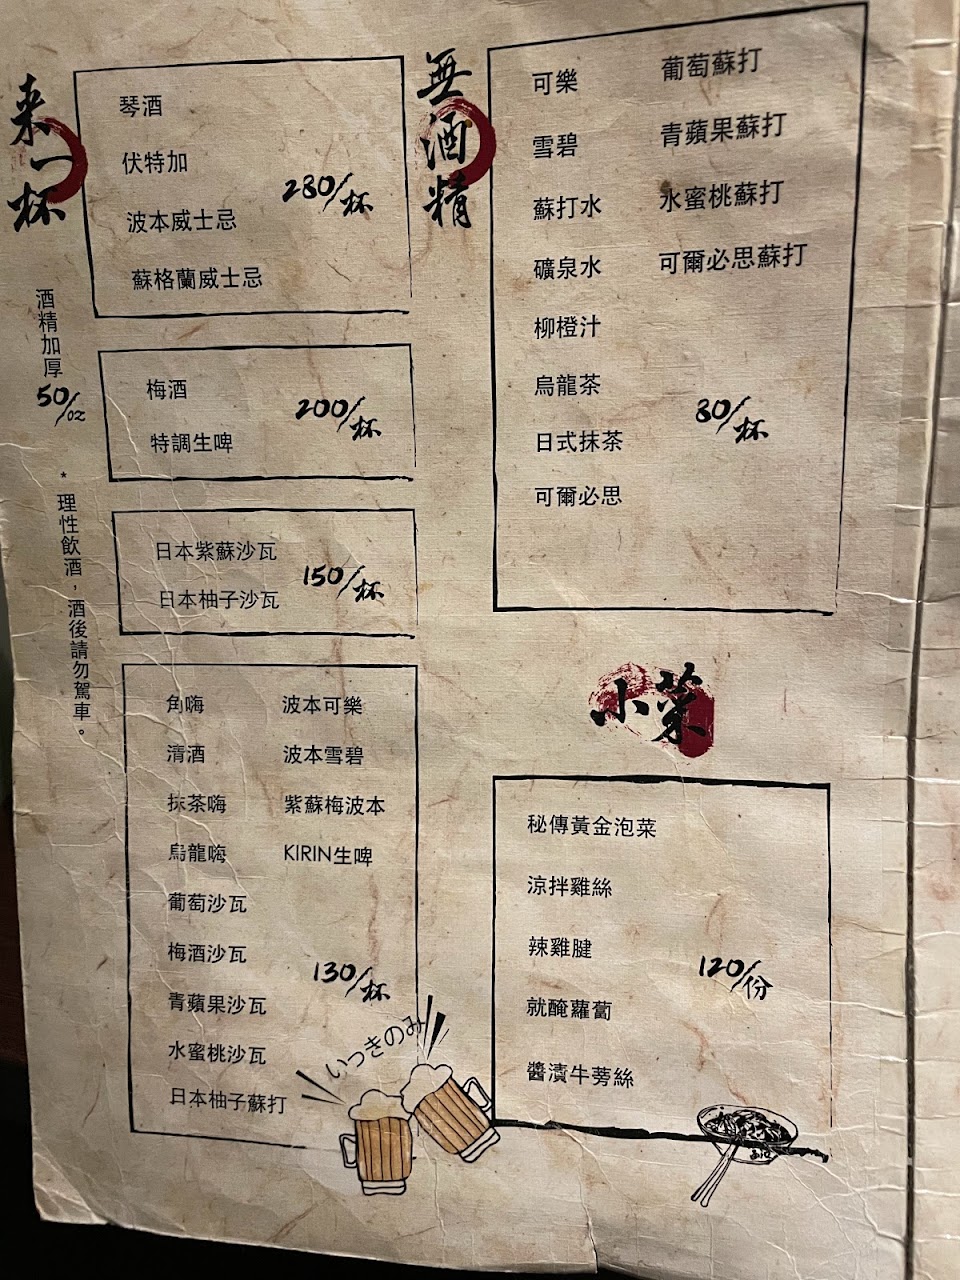 来一杯
琴酒
伏特加
波本威士忌
蘇格蘭威士忌
280/杯
酒精加厚
50/oz
*理性飲酒，酒後請勿駕車。
梅酒
特調生啤
200/杯
日本紫蘇沙瓦
日本柚子沙瓦
150/杯
角嗨 波本可樂
清酒 波本雪碧
抹茶嗨 紫蘇梅波本
烏龍嗨 KIRIN生啤
葡萄沙瓦
梅酒沙瓦
青蘋果沙瓦
水蜜桃沙瓦
日本柚子蘇打
130/杯
いっきのみ
無酒精
可樂 葡萄蘇打
雪碧 青蘋果蘇打
蘇打水 水蜜桃蘇打
礦泉水 可爾必思蘇打
柳橙汁
烏龍茶
日式抹茶
可爾必思
80/杯
小菜
秘傳黃金泡菜
涼拌雞絲
辣雞腱
就醃蘿蔔
醬漬牛蒡絲
120/份